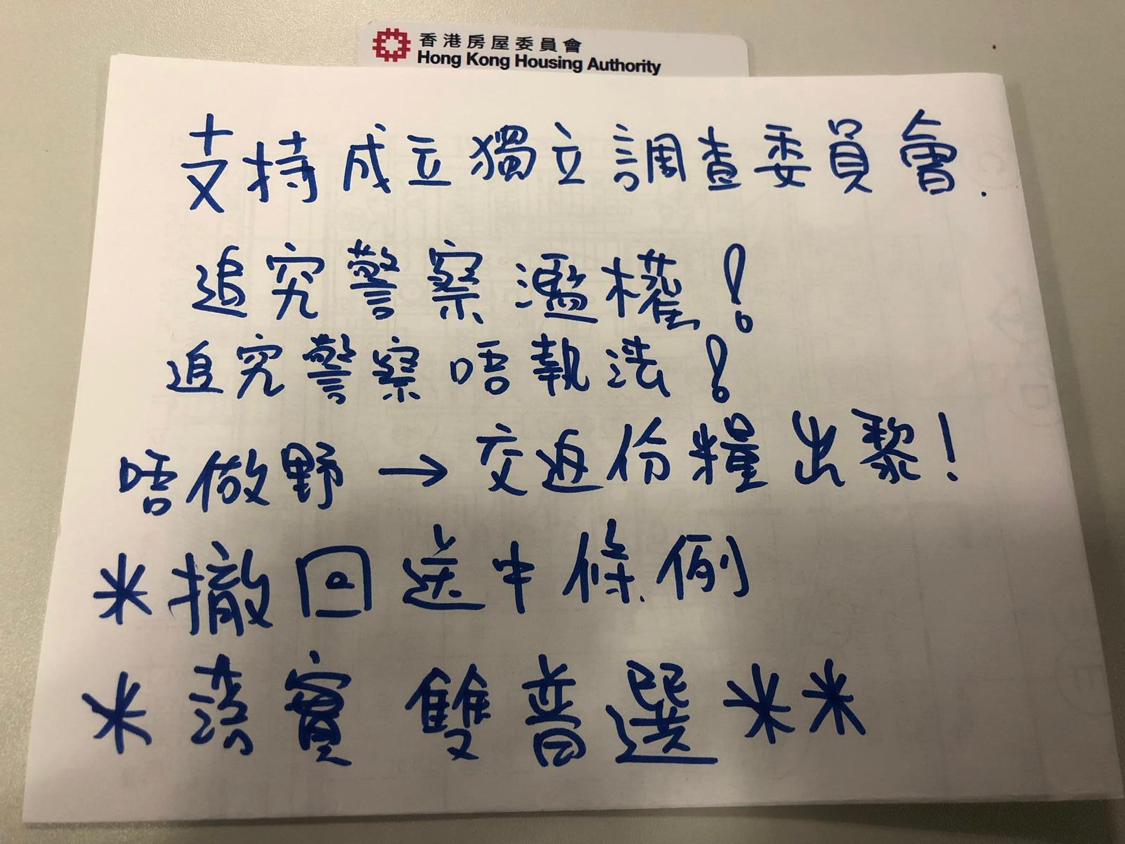 香港房屋委員會
Hong Kong Housing Authority
支持成立獨立調查委員會.
追究警察濫權!
追究警察唔執法!
唔做野→交返份糧出黎!
*撤回送中條例
*落實雙普選**